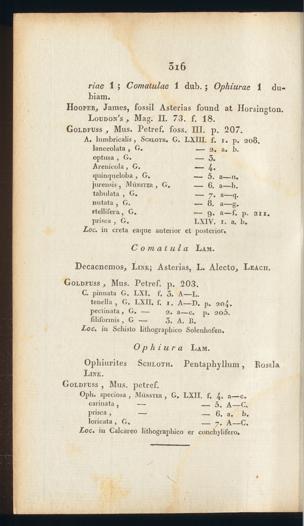 316
riae 1; Comatulae 1 dub.; Ophiurae 1 du-
biam.
Hooper, James, fossil Asterias found at Horsington.
Loudon's, Mag. II. 73. f. 18.
Goldfuss, Mus. Petref. foss. III. p. 207.
A. lumbricalis, Schloth. G. LXIII. f. 1. p. 208.
lanceolata, G. — 2. a. b.
optusa, G. — 3.
Arenicola, G. — 4.
quinqueloba, G. — 5. a—u.
jurensis, Münster, G. — 6. a—h.
tabulata, G. — 7. a—q.
nutata, G. — 8. a—g.
stellifera, G. — 9. a—f. p. 211.
prisca, G. LXIV. 1. a. b.
Loc. in creta eaque anterior et posterior.
Comatula Lam.
Decacnemos, Link; Asterias, L. Alecto, Leach.
Goldfuss, Mus. Petref. p. 203.
C. pinnata G. LXI. f. 3. A—L.
tenella, G. LXII. f. 1. A—D. p. 204.
pectinata, G. — 2. a—c. p. 205.
filiformis, G — 3. A. B.
Loc. in Schisto lithographico Solenhofen.
Ophiura Lam.
Ophiurites Schloth. Pentaphyllum, Rosula
Link.
Goldfuss, Mus. petref.
Oph. speciosa, Münster, G. LXII. f. 4. a—c.
carinata, — — 5. A—C.
prisca, — — 6. a. b.
loricata, G. — 7. A—C.
Loc. in Calcareo lithographico er conchylifero.